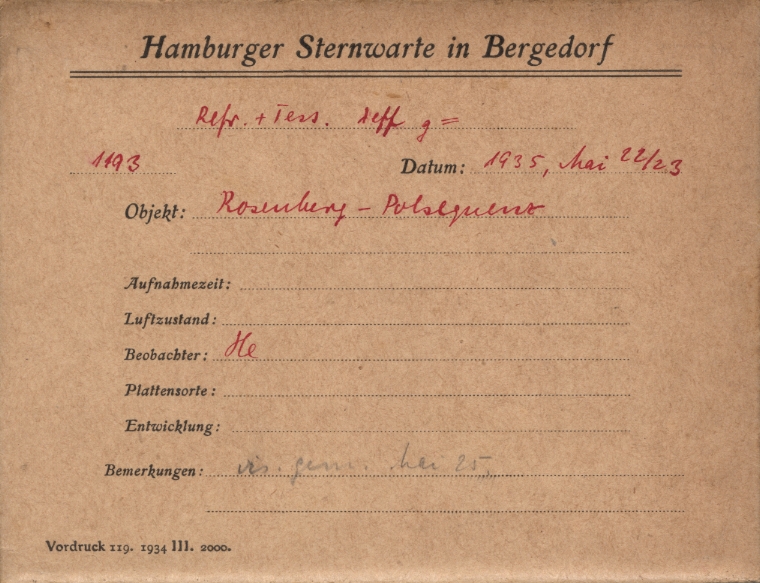 Hamburger Sternwarte in Bergedorf
Refr. + Tess. g =
1193 Datum: 1935, Mai 22/23
Objekt: Rosenberg - Polsequenz
Aufnahmezeit:
Luftzustand:
Beobachter: He
Plattensorte:
Entwicklung:
Bemerkungen: vis. gem. Mai 25.
Vordruck 119. 1934 III. 2000.